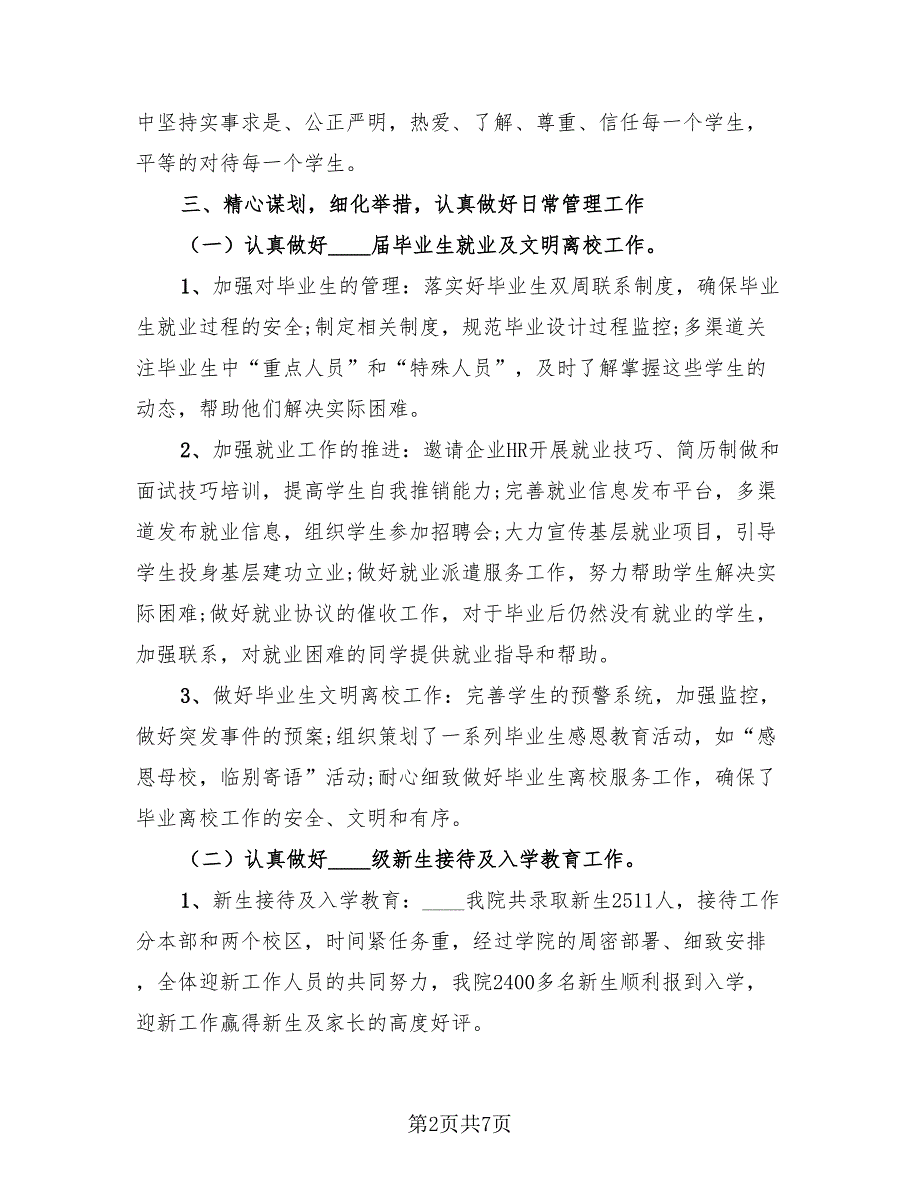 中坚持实事求是、公正严明，热爱、了解、尊重、信任每一个学生，
平等的对待每一个学生。
三、精心谋划，细化举措，认真做好日常管理工作
（一）认真做好____届毕业生就业及文明离校工作。
1、加强对毕业生的管理：落实好毕业生双周联系制度，确保毕业
生就业过程的安全;制定相关制度，规范毕业设计过程监控;多渠道关
注毕业生中“重点人员”和“特殊人员”，及时了解掌握这些学生的
动态，帮助他们解决实际困难。
2、加强就业工作的推进：邀请企业HR开展就业技巧、简历制做和
面试技巧培训，提高学生自我推销能力;完善就业信息发布平台，多渠
道发布就业信息，组织学生参加招聘会;大力宣传基层就业项目，引导
学生投身基层建功立业;做好就业派遣服务工作，努力帮助学生解决实
际困难;做好就业协议的催收工作，对于毕业后仍然没有就业的学生，
加强联系，对就业困难的同学提供就业指导和帮助。
3、做好毕业生文明离校工作：完善学生的预警系统，加强监控，
做好突发事件的预案;组织策划了一系列毕业生感恩教育活动，如“感
恩母校，临别寄语”活动;耐心细致做好毕业生离校服务工作，确保了
毕业离校工作的安全、文明和有序。
（二）认真做好____级新生接待及入学教育工作。
1、新生接待及入学教育：____我院共录取新生2511人，接待工作
分本部和两个校区，时间紧任务重，经过学院的周密部署、细致安排
，全体迎新工作人员的共同努力，我院2400多名新生顺利报到入学，
迎新工作赢得新生及家长的高度好评。
第2页共7页